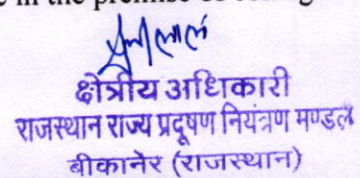 e in the premise of
क्षेत्रीय अधिकारी
राजस्थान राज्य प्रदूषण नियंत्रण मण्डल
बीकानेर (राजस्थान)